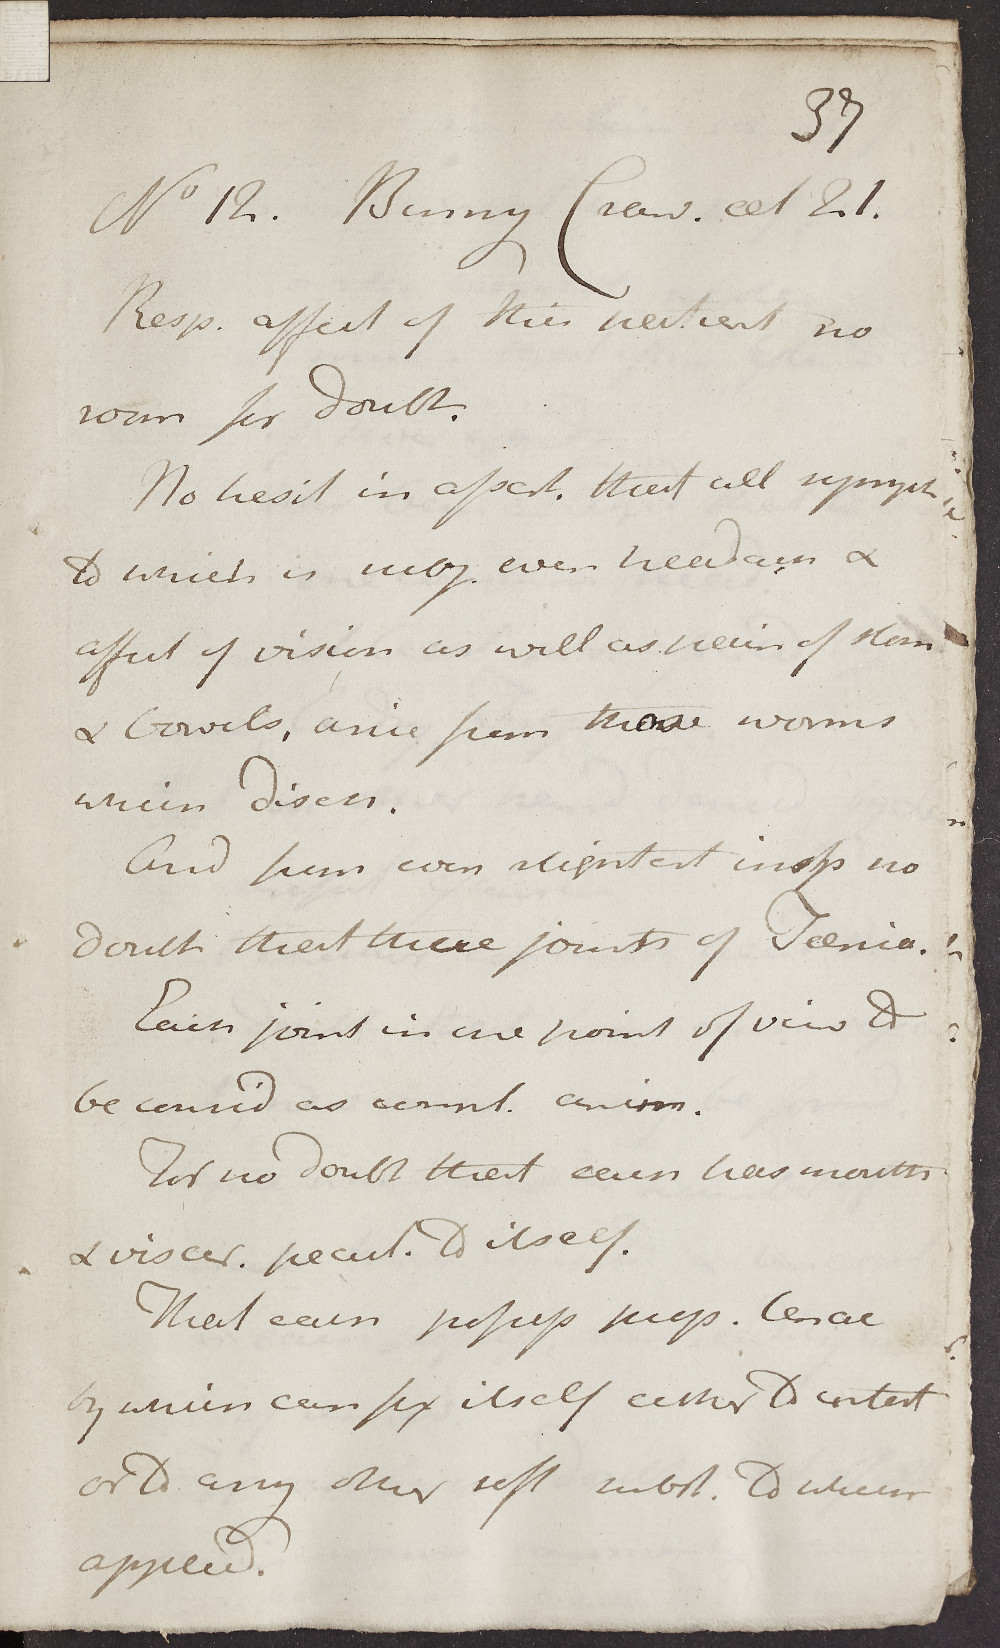 37
No 12. Bunny Craw. aet 21.
Resp. affect of this patient no
room for doubt.
No hesit in assert. that all sympt
to which is subj. even headach &
affect of vision as well as pain of stom
& bowels, arise from those worms
which disch.
And from even slightest insp no
doubt that these joints of Tænia.
Each joint in one point of view to
be consid as compl. anim.
For no doubt that each has mouth
& viscer. pecul. to itself.
That each possess prop.
by which can fix itself either to intest
or to any other soft subst. to which
applied.